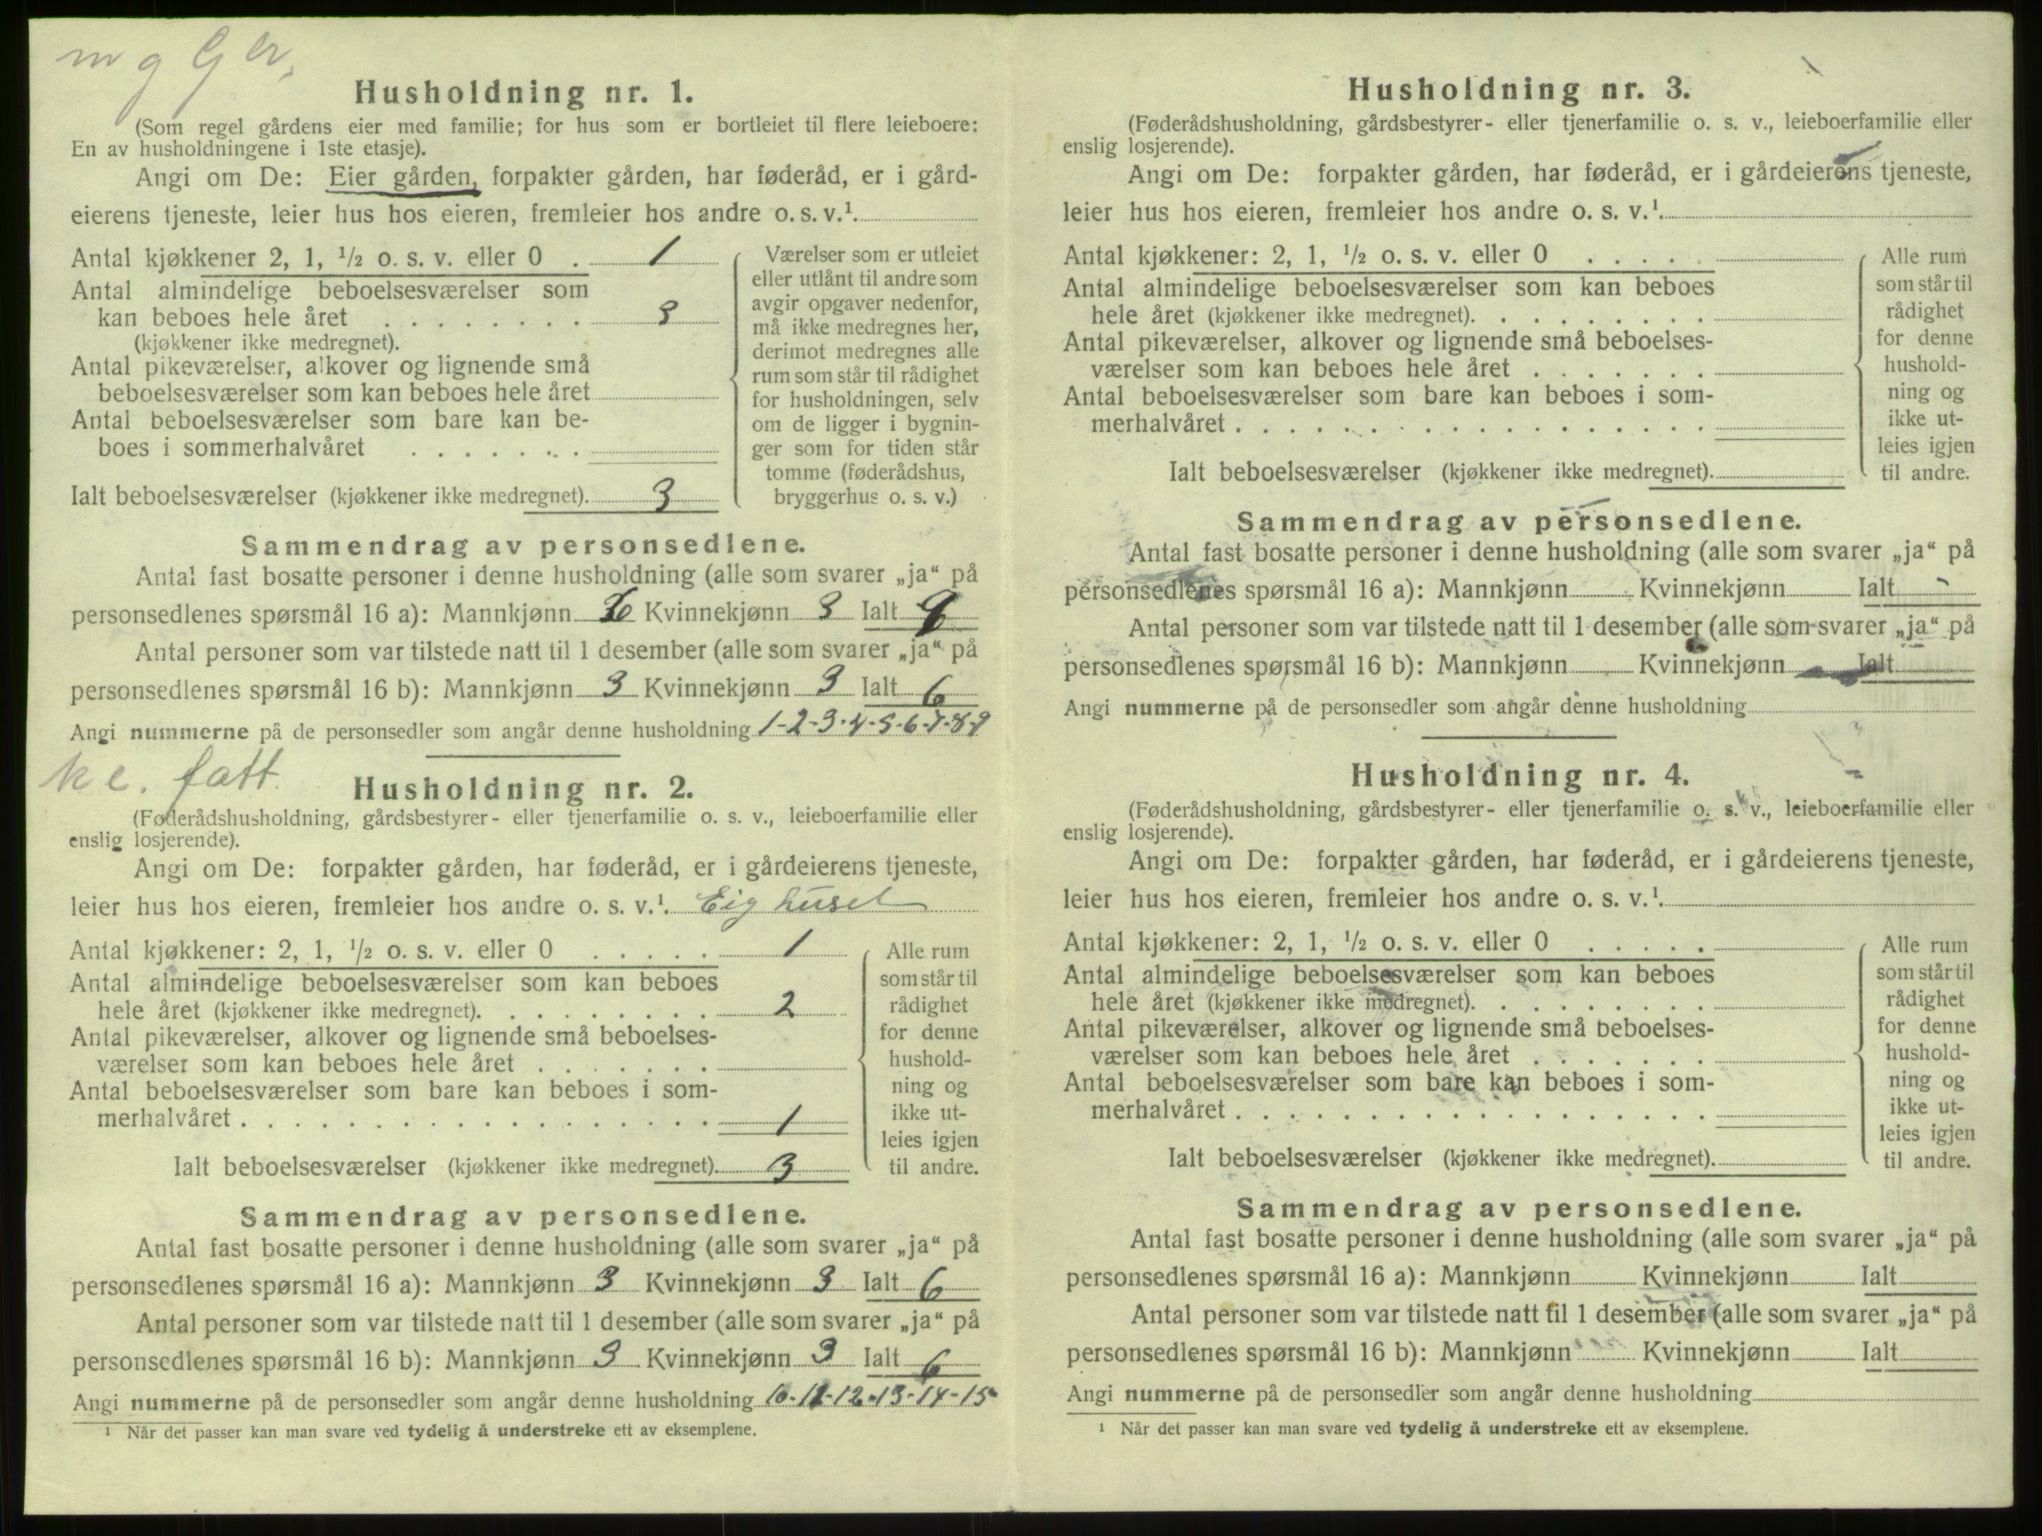 Husholdning nr. 1.
(Som regel gårdens eier med familie; for hus som er bortleiet til flere leieboere:
En av husholdningene i 1ste etasje).
Angi om De: Eier gården, forpakter gården, har føderåd, er i gård-
eierens tjeneste, leier hus hos eieren, fremleier hos andre o. s. v.¹
Antal kjøkkener 2, 1, ½ o. s. v. eller 0 . 1
Antal almindelige beboelsesværelser som
kan beboes hele året . . . . . . . . 3
(kjøkkener ikke medregnet).
Antal pikeværelser, alkover og lignende små
beboelsesværelser som kan beboes hele året
Antal beboelsesværelser som bare kan be-
boes i sommerhalvåret . . . . . . .
Ialt beboelsesværelser (kjøkkener ikke medregnet). 3
Værelser som er utleiet
eller utlånt til andre som
avgir opgaver nedenfor,
må ikke medregnes her,
derimot medregnes alle
rum som står til rådighet
for husholdningen, selv
om de ligger i bygnin-
ger som for tiden står
tomme (føderådshus,
bryggerhus o. s. v.)
Sammendrag av personsedlene.
Antal fast bosatte personer i denne husholdning (alle som svarer „ja“ på
personsedlenes spørsmål 16 a): Mannkjønn 6 Kvinnekjønn 3 Ialt 9
Antal personer som var tilstede natt til 1 desember (alle som svarer „ja“ på
personsedlenes spørsmål 16 b): Mannkjønn 3 Kvinnekjønn 3 Ialt 6
Angi nummerne på de personsedler som angår denne husholdning 1-2-3-4-5-6-7-8-9
fatt.
Husholdning nr. 2.
(Føderådshusholdning, gårdsbestyrer- eller tjenerfamilie o. s. v., leieboerfamilie eller
enslig losjerende).
Angi om De: forpakter gården, har føderåd, er i gårdeierens tjeneste,
leier hus hos eieren, fremleier hos andre o. s. v.¹. Eig huset
Antal kjøkkener: 2, 1, ½ o. s. v. eller 0 . . . . . 1
Antal almindelige beboelsesværelser som kan beboes
hele året (kjøkkener ikke medregnet). . . . . . . . . 2
Antal pikeværelser, alkover og lignende små beboelses-
værelser som kan beboes hele året . . . . . . .
Antal beboelsesværelser som bare kan beboes i som-
merhalvåret . . . . . . . . . . . . . . . . . . 1
Ialt beboelsesværelser (kjøkkener ikke medregnet). 3
Alle rum
som står til
rådighet
for denne
hushold-
ning og
ikke ut-
leies igjen
til andre.
Sammendrag av personsedlene.
Antal fast bosatte personer i denne husholdning (alle som svarer „ja“ på
personsedlenes spørsmål 16 a): Mannkjønn 3 Kvinnekjønn 3 Ialt 6
Antal personer som var tilstede natt til 1 desember (alle som svarer „ja“ på
personsedlenes spørsmål 16 b): Mannkjønn 3 Kvinnekjønn 3 Ialt 6
Angi nummerne på de personsedler som angår denne husholdning 10-11-12-13-14-15
¹ Når det passer kan man svare ved tydelig å understreke ett av eksemplene.
Husholdning nr. 3.
(Føderådshusholdning, gårdsbestyrer- eller tjenerfamilie o. s. v., leieboerfamilie eller
enslig losjerende).
Angi om De: forpakter gården, har føderåd, er i gårdeierens tjeneste,
leier hus hos eieren, fremleier hos andre o. s. v.¹.
Antal kjøkkener: 2, 1, ½ o. s. v. eller 0 . . . . .
Antal almindelige beboelsesværelser som kan beboes
hele året (kjøkkener ikke medregnet). . . . . . . . .
Antal pikeværelser, alkover og lignende små beboelses-
værelser som kan beboes hele året . . . . . . .
Antal beboelsesværelser som bare kan beboes i som-
merhalvåret . . . . . . . . . . . . . . . . . .
Ialt beboelsesværelser (kjøkkener ikke medregnet).
Alle rum
som står til
rådighet
for denne
hushold-
ning og
ikke ut-
leies igjen
til andre.
Sammendrag av personsedlene.
Antal fast bosatte personer i denne husholdning (alle som svarer „ja“ på
personsedlenes spørsmål 16 a): Mannkjønn Kvinnekjønn Ialt
Antal personer som var tilstede natt til 1 desember (alle som svarer „ja“ på
personsedlenes spørsmål 16 b): Mannkjønn Kvinnekjønn Ialt
Angi nummerne på de personsedler som angår denne husholdning
Husholdning nr. 4.
(Føderådshusholdning, gårdsbestyrer- eller tjenerfamilie o. s. v., leieboerfamilie eller
enslig losjerende).
Angi om De: forpakter gården, har føderåd, er i gårdeierens tjeneste,
leier hus hos eieren, fremleier hos andre o. s. v.¹.
Antal kjøkkener: 2, 1, ½ o. s. v. eller 0 . . . . .
Antal almindelige beboelsesværelser som kan beboes
hele året (kjøkkener ikke medregnet). . . . . . . . .
Antal pikeværelser, alkover og lignende små beboelses-
værelser som kan beboes hele året . . . . . . .
Antal beboelsesværelser som bare kan beboes i som-
merhalvåret . . . . . . . . . . . . . . . . . .
Ialt beboelsesværelser (kjøkkener ikke medregnet).
Alle rum
som står til
rådighet
for denne
hushold-
ning og
ikke ut-
leies igjen
til andre.
Sammendrag av personsedlene.
Antal fast bosatte personer i denne husholdning (alle som svarer „ja“ på
personsedlenes spørsmål 16 a): Mannkjønn Kvinnekjønn Ialt
Antal personer som var tilstede natt til 1 desember (alle som svarer „ja“ på
personsedlenes spørsmål 16 b): Mannkjønn Kvinnekjønn Ialt
Angi nummerne på de personsedler som angår denne husholdning
¹ Når det passer kan man svare ved tydelig å understreke ett av eksemplene.